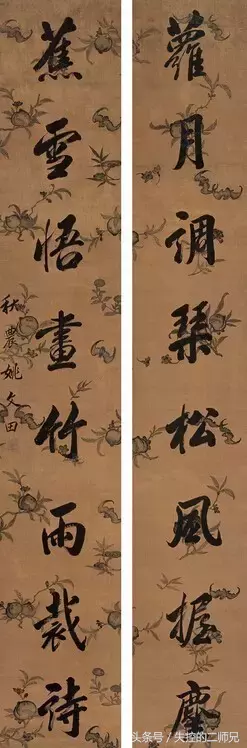 蘿月調琴松風握麈
蕉雪悟畫竹雨裁詩
秋農姚文田
头条号 / 失控的二师兄